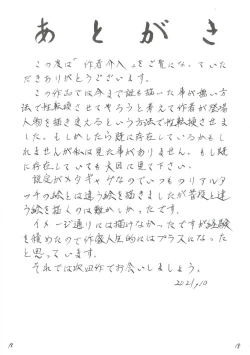 あとがき
この度は「作者介入」をご覧になっていた
だきありがとうございます。
この作品では今まで誰も描いた事が無い方
法で性転換させてやろうと考えて作者が登場
人物を描き変えるという方法で性転換させま
した。もしかしたら既に存在しているかもし
れませんが私は見た事がありません。もし既
に存在していても大目に見て下さい。
設定がメタギャグなのでいつものリアルタ
ッチの絵とは違う絵を描きましたが普段と違
う絵を描くのは難しかったです。
イメージ通りには描けなかったですが経験
を積めたので作家人生的にはプラスになった
と思っています。
それでは次回作でお会いしましょう。
2021,10